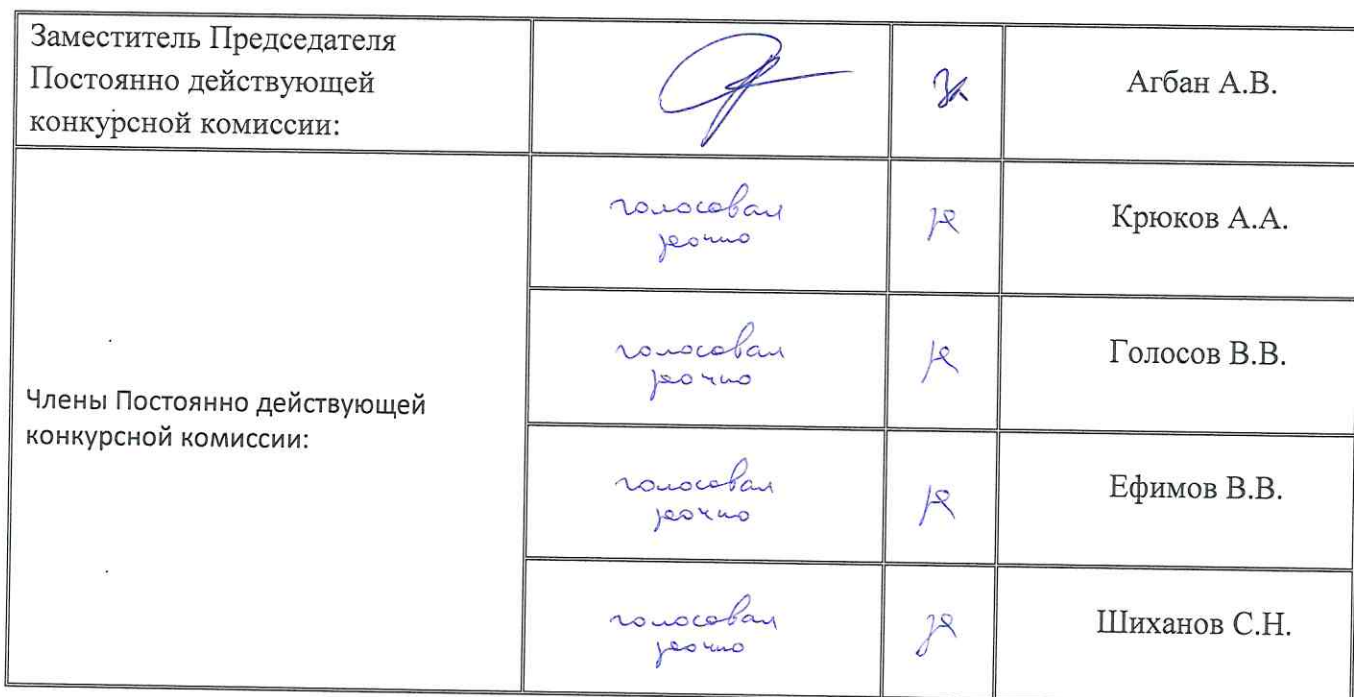 Заместитель Председателя
Постоянно действующей
конкурсной комиссии:
за
Агбан А.В.
Члены Постоянно действующей
конкурсной комиссии:
голосовал
заочно
за
Крюков А.А.
голосовал
заочно
за
Голосов В.В.
голосовал
заочно
за
Ефимов В.В.
голосовал
заочно
за
Шиханов С.Н.